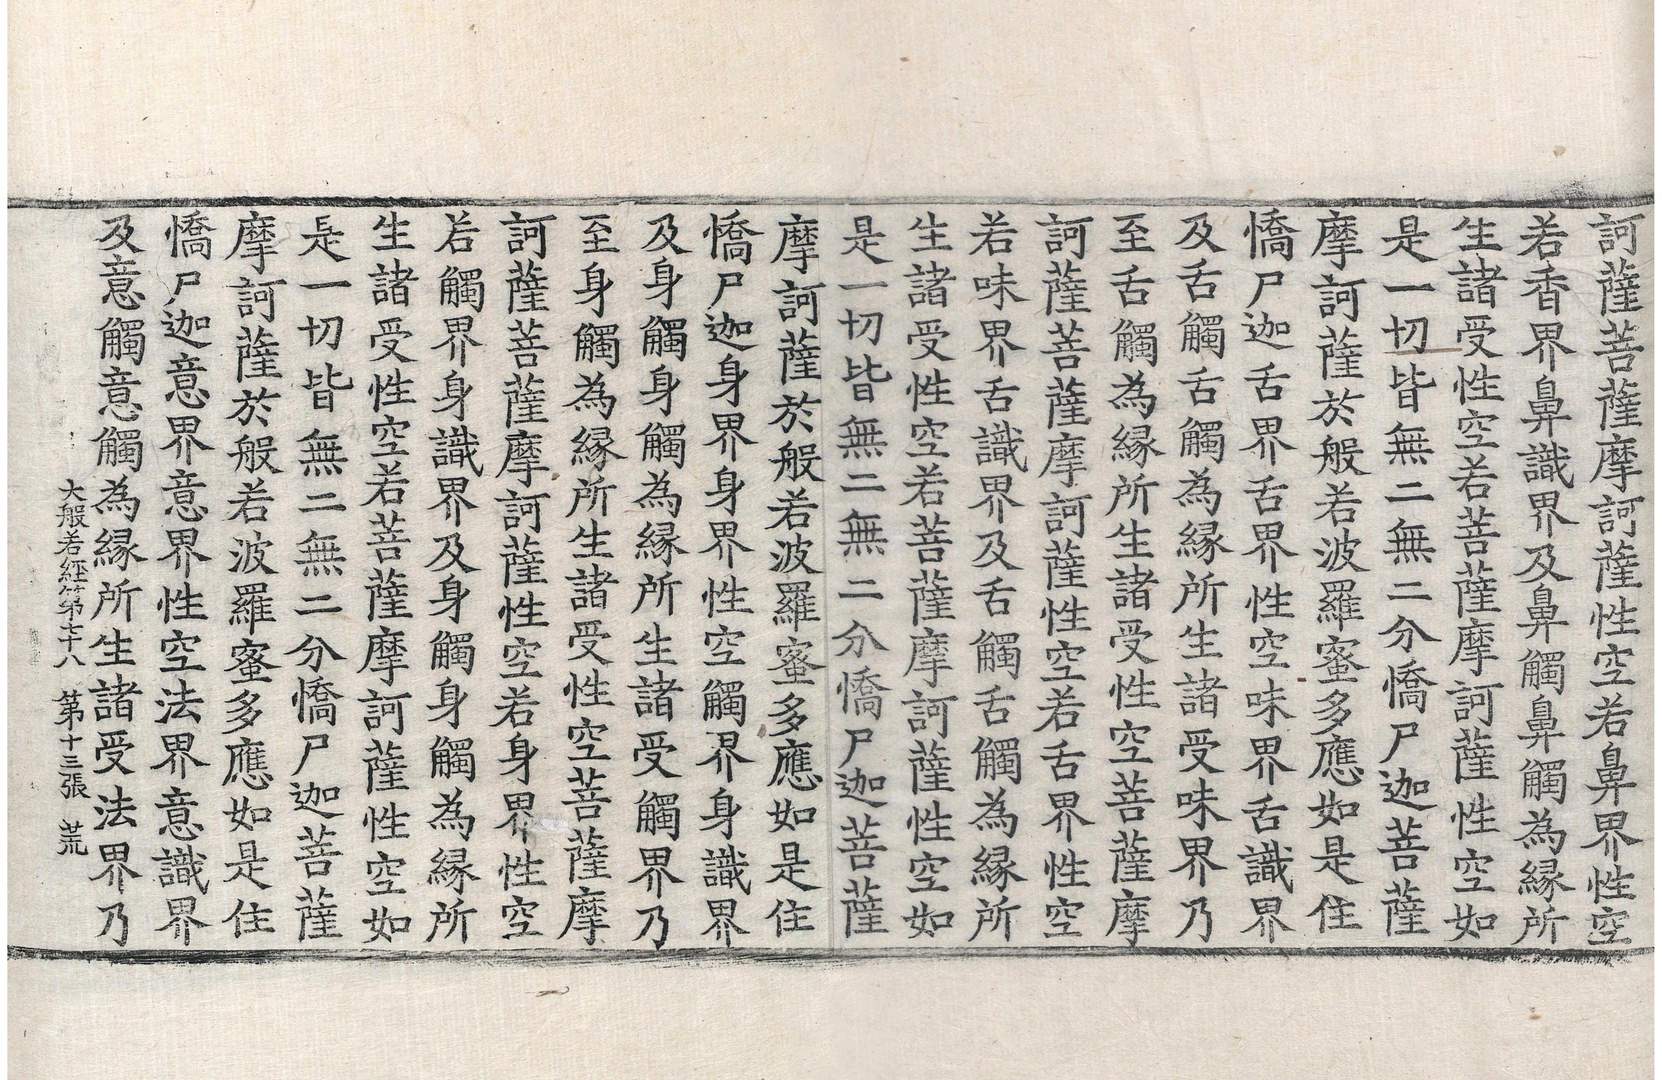 訶薩菩薩摩訶薩性空若鼻界性空
若香界鼻識界及鼻觸鼻觸為縁所
生諸受性空若菩薩摩訶薩性空如
是一切皆無二無二分憍尸迦菩薩
摩訶薩於般若波羅蜜多應如是住
憍尸迦舌界舌界性空味界舌識界
及舌觸舌觸為縁所生諸受味界乃
至舌觸為縁所生諸受性空菩薩摩
訶薩菩薩摩訶薩性空若舌界性空
若味界舌識界及舌觸舌觸為縁所
生諸受性空若菩薩摩訶薩性空如
是一切皆無二無二分憍尸迦菩薩
摩訶薩於般若波羅蜜多應如是住
憍尸迦身界身界性空觸界身識界
及身觸身觸為縁所生諸受觸界乃
至身觸為縁所生諸受性空菩薩摩
訶薩菩薩摩訶薩性空若身界性空
若觸界身識界及身觸身觸為縁所
生諸受性空若菩薩摩訶薩性空如
是一切皆無二無二分憍尸迦菩薩
摩訶薩於般若波羅蜜多應如是住
憍尸迦意界意界性空法界意識界
及意觸意觸為縁所生諸受法界乃
大般若經第七十八 第十三張 荒